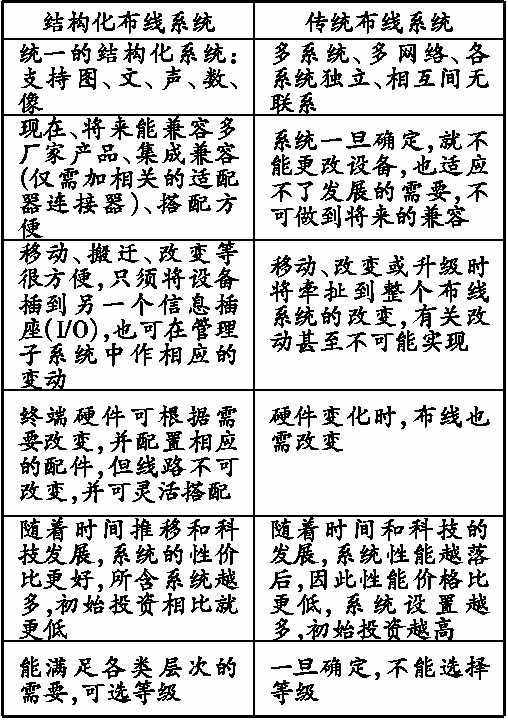 结构化布线系统
传统布线系统
统一的结构化系统：
支持图、文、声、数、
像
多系统、多网络、各
系统独立、相互间无
联系
现在、将来能兼容多
厂家产品、集成兼容
(仅需加相关的适配
器连接器)、搭配方
便
系统一旦确定，就不
能更改设备，也适应
不了发展的需要，不
可做到将来的兼容
移动、搬迁、改变等
很方便，只须将设备
插到另一个信息插
座(I/O)，也可在管理
子系统中作相应的
变动
移动、改变或升级时
将牵扯到整个布线
系统的改变，有关改
动甚至不可能实现
终端硬件可根据需
要改变，并配置相应
的配件，但线路不可
改变，并可灵活搭配
硬件变化时，布线也
需改变
随着时间推移和科
技发展，系统的性价
比更好，所含系统越
多，初始投资相比就
更低
随着时间和科技的
发展，系统性能越落
后，因此性能价格比
更低，系统设置越
多，初始投资越高
能满足各类层次的
需要，可选等级
一旦确定，不能选择
等级